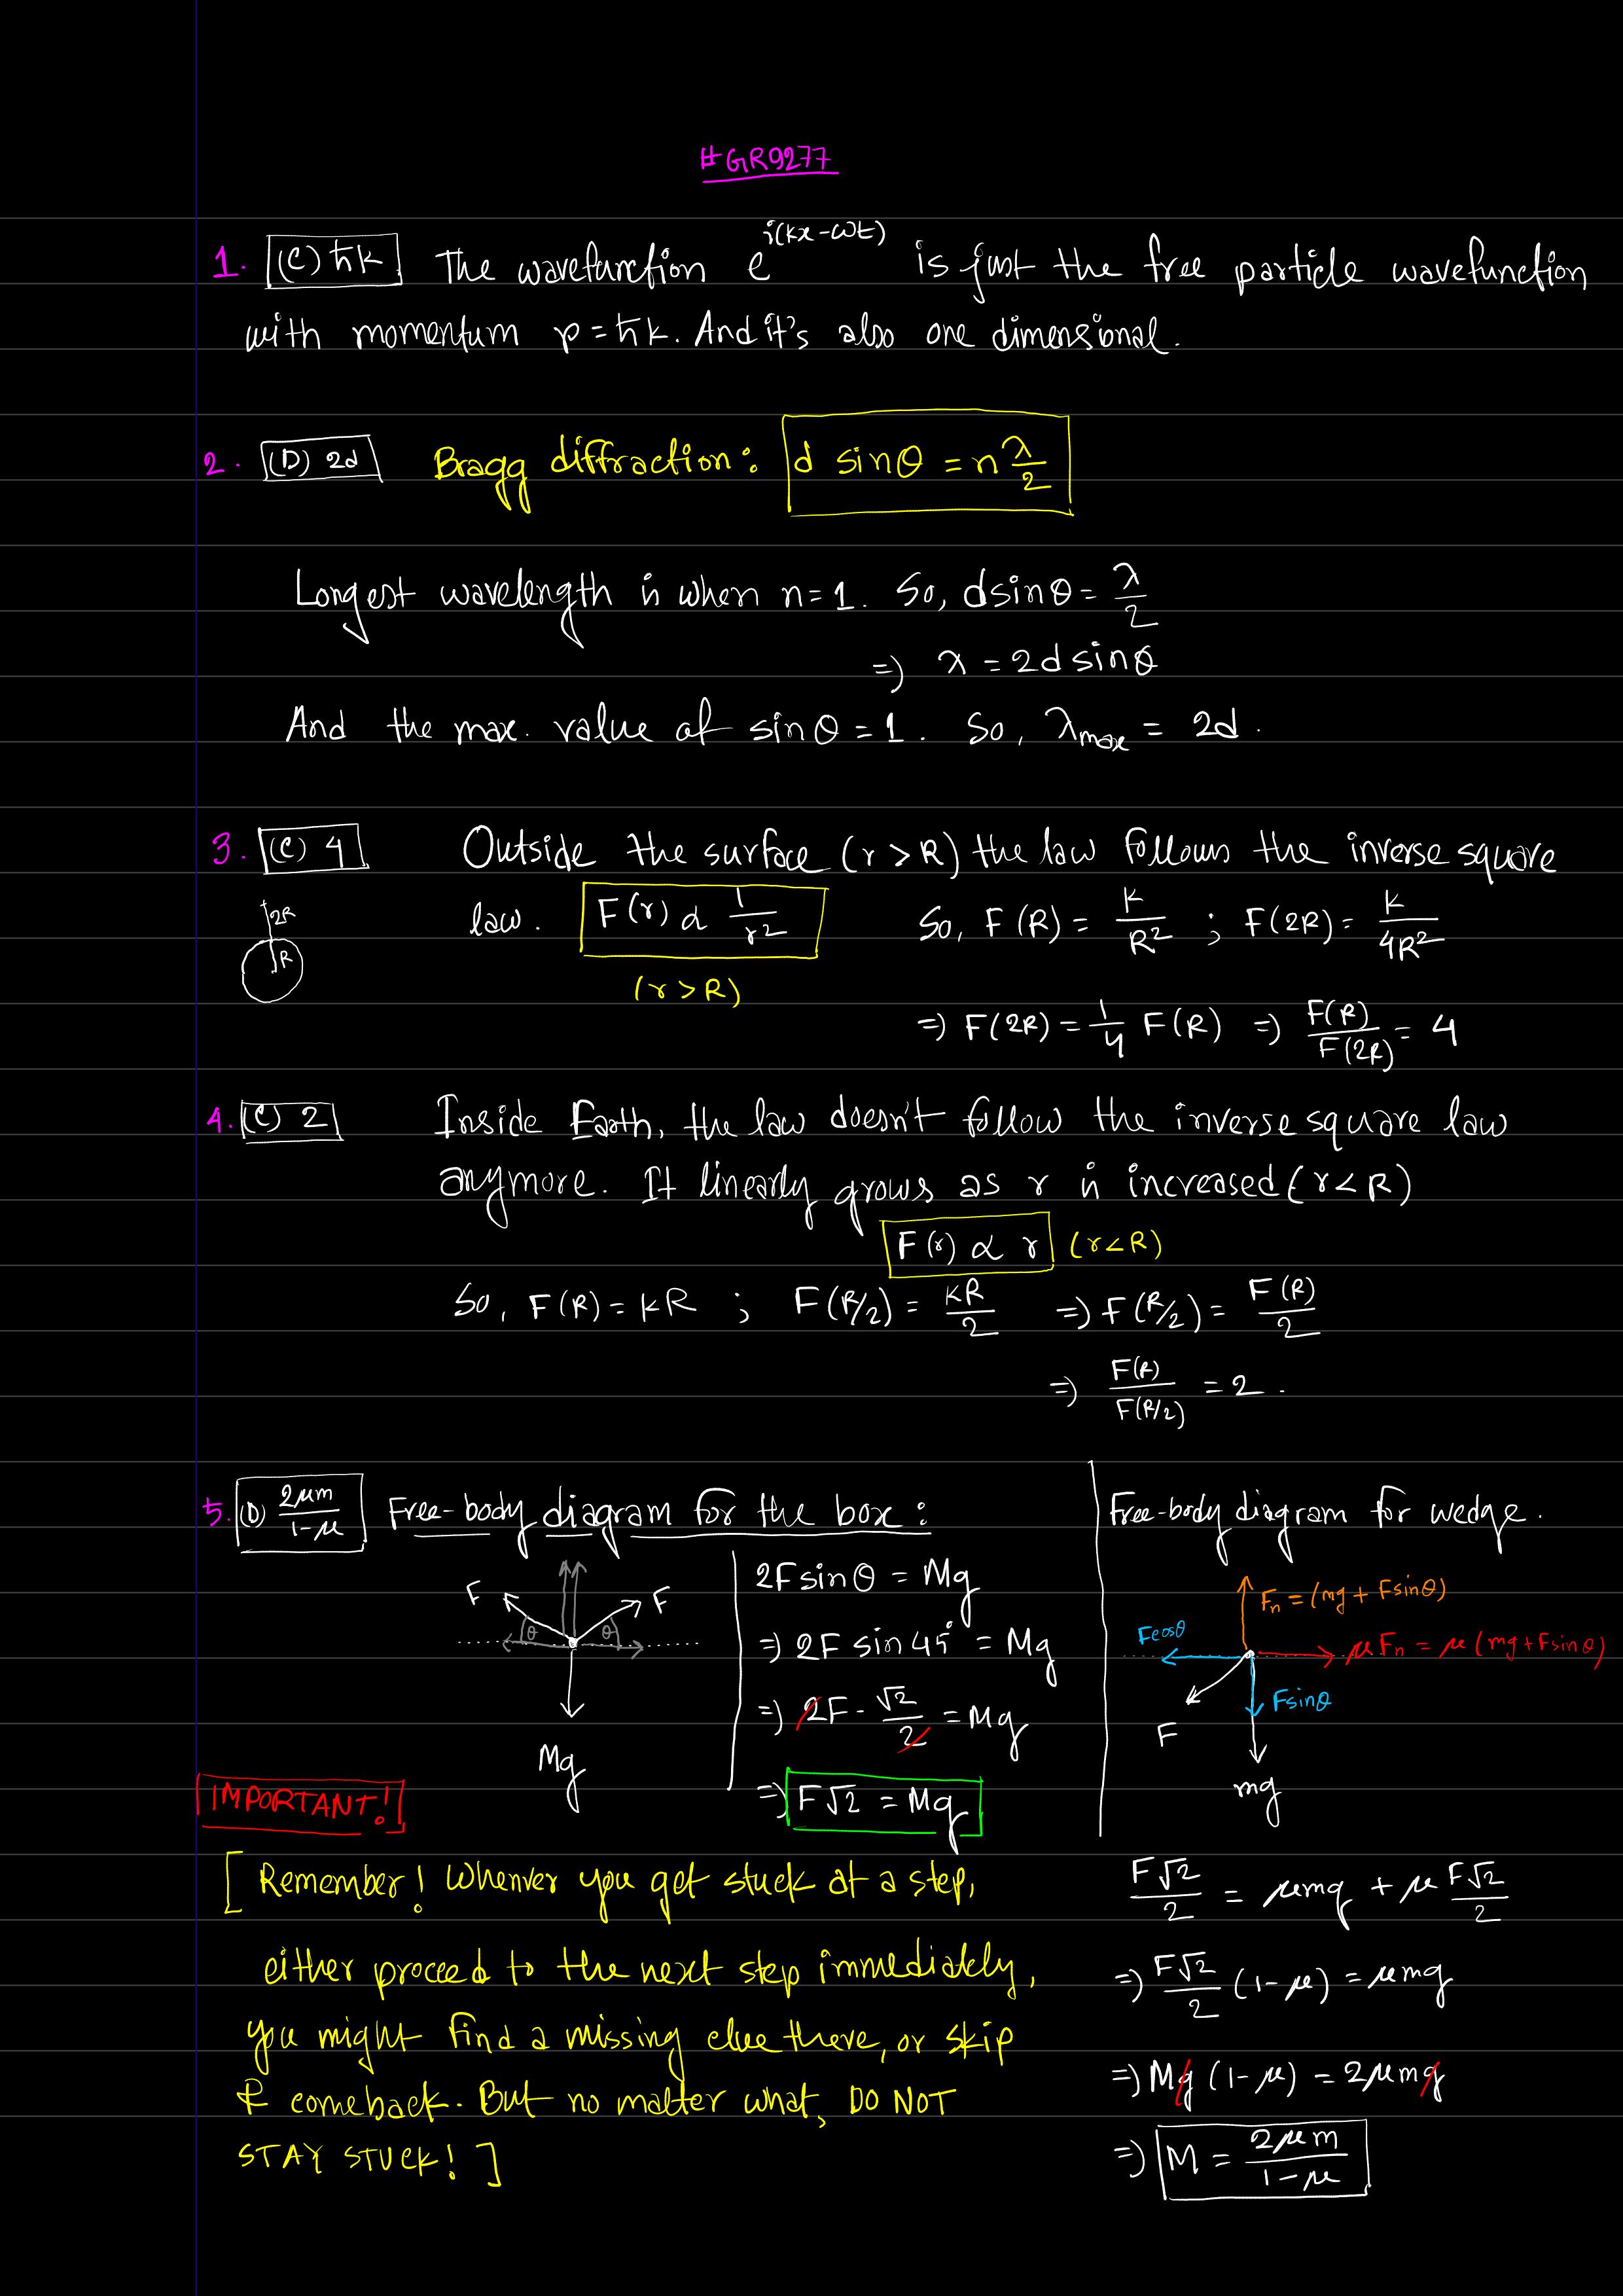 #GR9277
1. (C) ħk The wavefunction e^{i(kx-ωt)} is just the free particle wavefunction
with momentum p = ħk. And it's also one dimensional.
2. (D) 2d Bragg diffraction: d sinθ = n λ/2
Longest wavelength is when n=1. So, d sinθ = λ/2
⇒ λ = 2d sinθ
And the max. value of sinθ = 1. So, λ_max = 2d.
3. (C) 4 Outside the surface (r > R) the law follows the inverse square
law. F(r) ∝ 1/r² So, F(R) = k/R² ; F(2R) = k/4R²
2R
R
(r > R)
⇒ F(2R) = 1/4 F(R) ⇒ F(R)/F(2R) = 4
4. (C) 2 Inside Earth, the law doesn't follow the inverse square law
anymore. It linearly grows as r is increased (r < R)
F(r) ∝ r (r < R)
So, F(R) = kR ; F(R/2) = kR/2 ⇒ F(R/2) = F(R)/2
⇒ F(R)/F(R/2) = 2.
5. (D) 2μm/1-μ Free-body diagram for the box:
F F
θ θ
Mg
2F sinθ = Mg
⇒ 2F sin 45° = Mg
⇒ 2F · √2/2 = Mg
⇒ F√2 = Mg
Free-body diagram for wedge.
Fn = (mg + Fsinθ)
Fcosθ
μFn = μ(mg + Fsinθ)
Fsinθ
F
mg
IMPORTANT!
[Remember! Whenver you get stuck at a step,
either proceed to the next step immediately,
you might find a missing clue there, or skip
& comeback. But no matter what, DO NOT
STAY STUCK!]
F√2/2 = μmg + μ F√2/2
⇒ F√2/2 (1-μ) = μmg
⇒ Mg (1-μ) = 2μmg
⇒ M = 2μm/1-μ